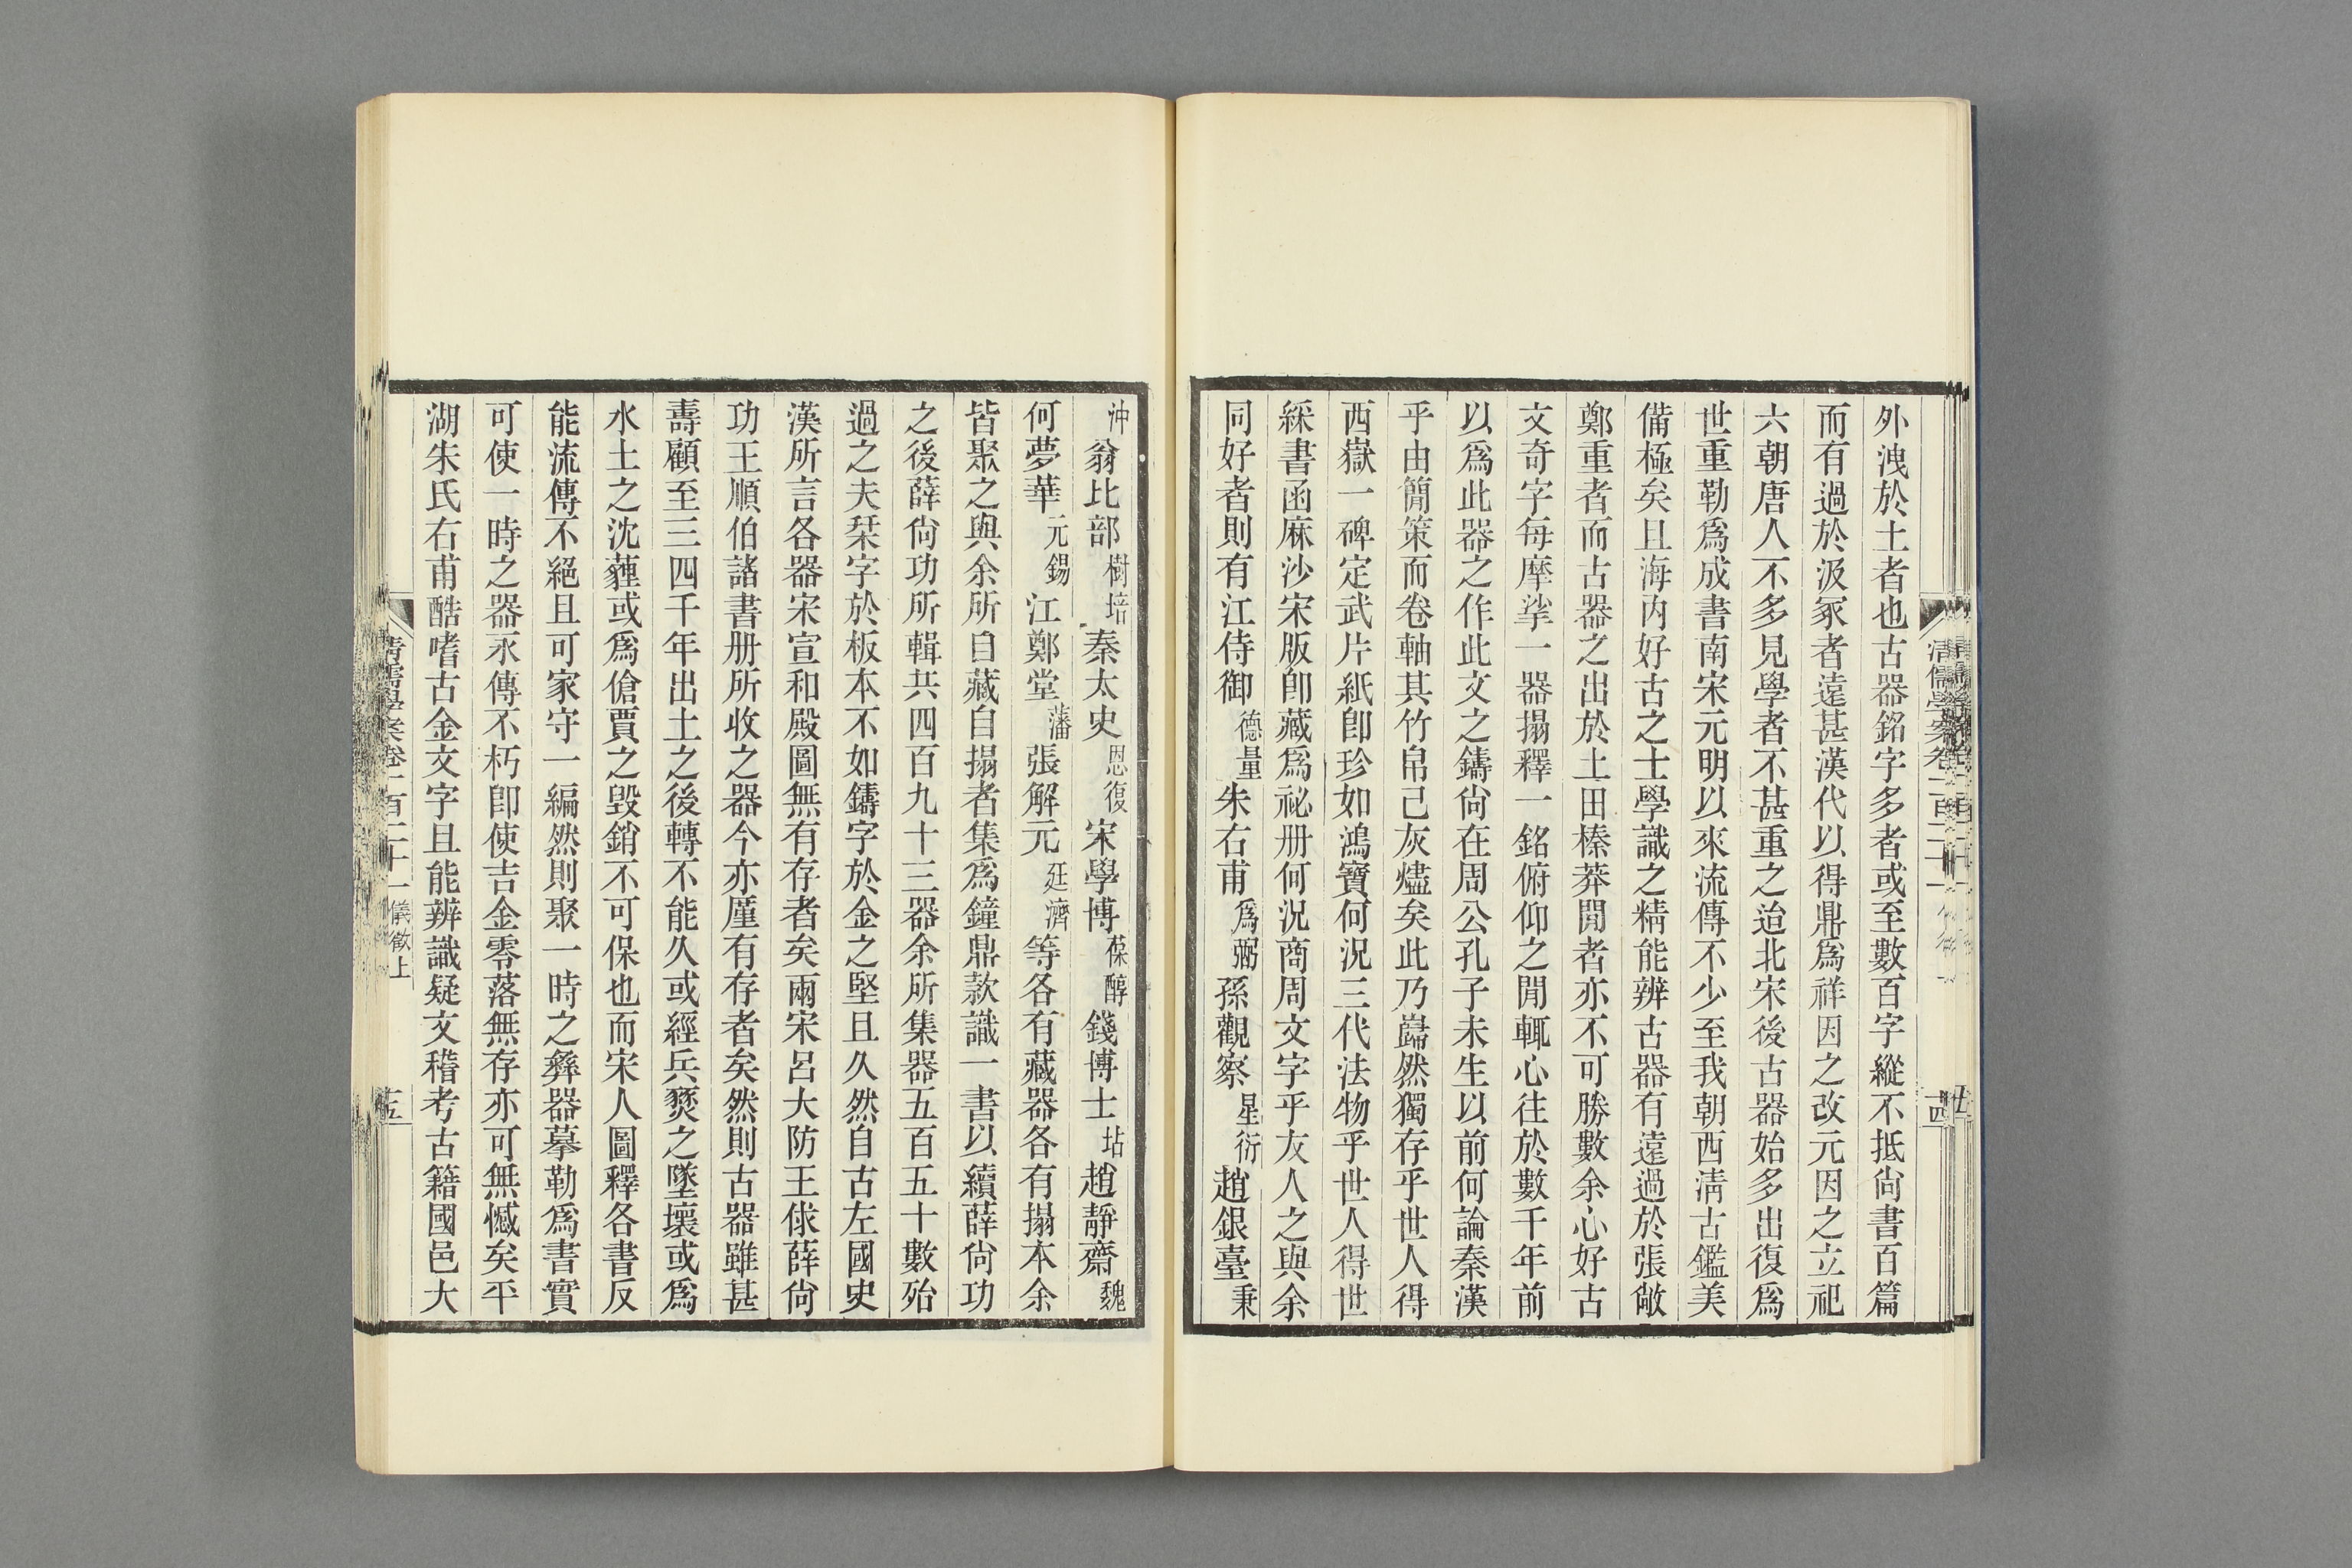 外洩於土者也古器銘字多者或至數百字縱不抵尙書百篇
而有過於汲冢者遠甚漢代以得鼎爲祥因之改元因之立祀
六朝唐人不多見學者不甚重之迨北宋後古器始多出復爲
世重勒爲成書南宋元明以來流傳不少至我朝西淸古鑑美
備極矣且海內好古之士學識之精能辨古器有遠過於張敞
鄭重者而古器之出於土田榛莽閒者亦不可勝數余心好古
文奇字每摩挲一器搨釋一銘俯仰之閒輒心往於數千年前
以爲此器之作此文之鑄尙在周公孔子未生以前何論秦漢
乎由簡策而卷軸其竹帛已灰燼矣此乃巋然獨存乎世人得
西嶽一碑定武片紙卽珍如鴻寶何況三代法物乎世人得世
綵書函麻沙宋版卽藏爲祕册何況商周文字乎友人之與余
同好者則有江侍御德量朱右甫爲弼孫觀察星衍趙銀臺秉
沖翁比部樹培秦太史恩復宋學博葆醇錢博士坫趙靜齋魏
何夢華元錫江鄭堂藩張解元廷濟等各有藏器各有搨本余
皆聚之與余所自藏自搨者集爲鐘鼎款識一書以續薛尙功
之後薛尙功所輯共四百九十三器余所集器五百五十數殆
過之夫栞字於板本不如鑄字於金之堅且久然自古左國史
漢所言各器宋宣和殿圖無有存者矣兩宋呂大防王俅薛尙
功王順伯諸書册所收之器今亦厪有存者矣然則古器雖甚
壽顧至三四千年出土之後轉不能久或經兵燹之墜壞或爲
水土之沈薶或爲傖賈之毀銷不可保也而宋人圖釋各書反
能流傳不絕且可家守一編然則聚一時之彝器摹勒爲書實
可使一時之器永傳不朽卽使吉金零落無存亦可無憾矣平
湖朱氏右甫酷嗜古金文字且能辨識疑文稽考古籍國邑大